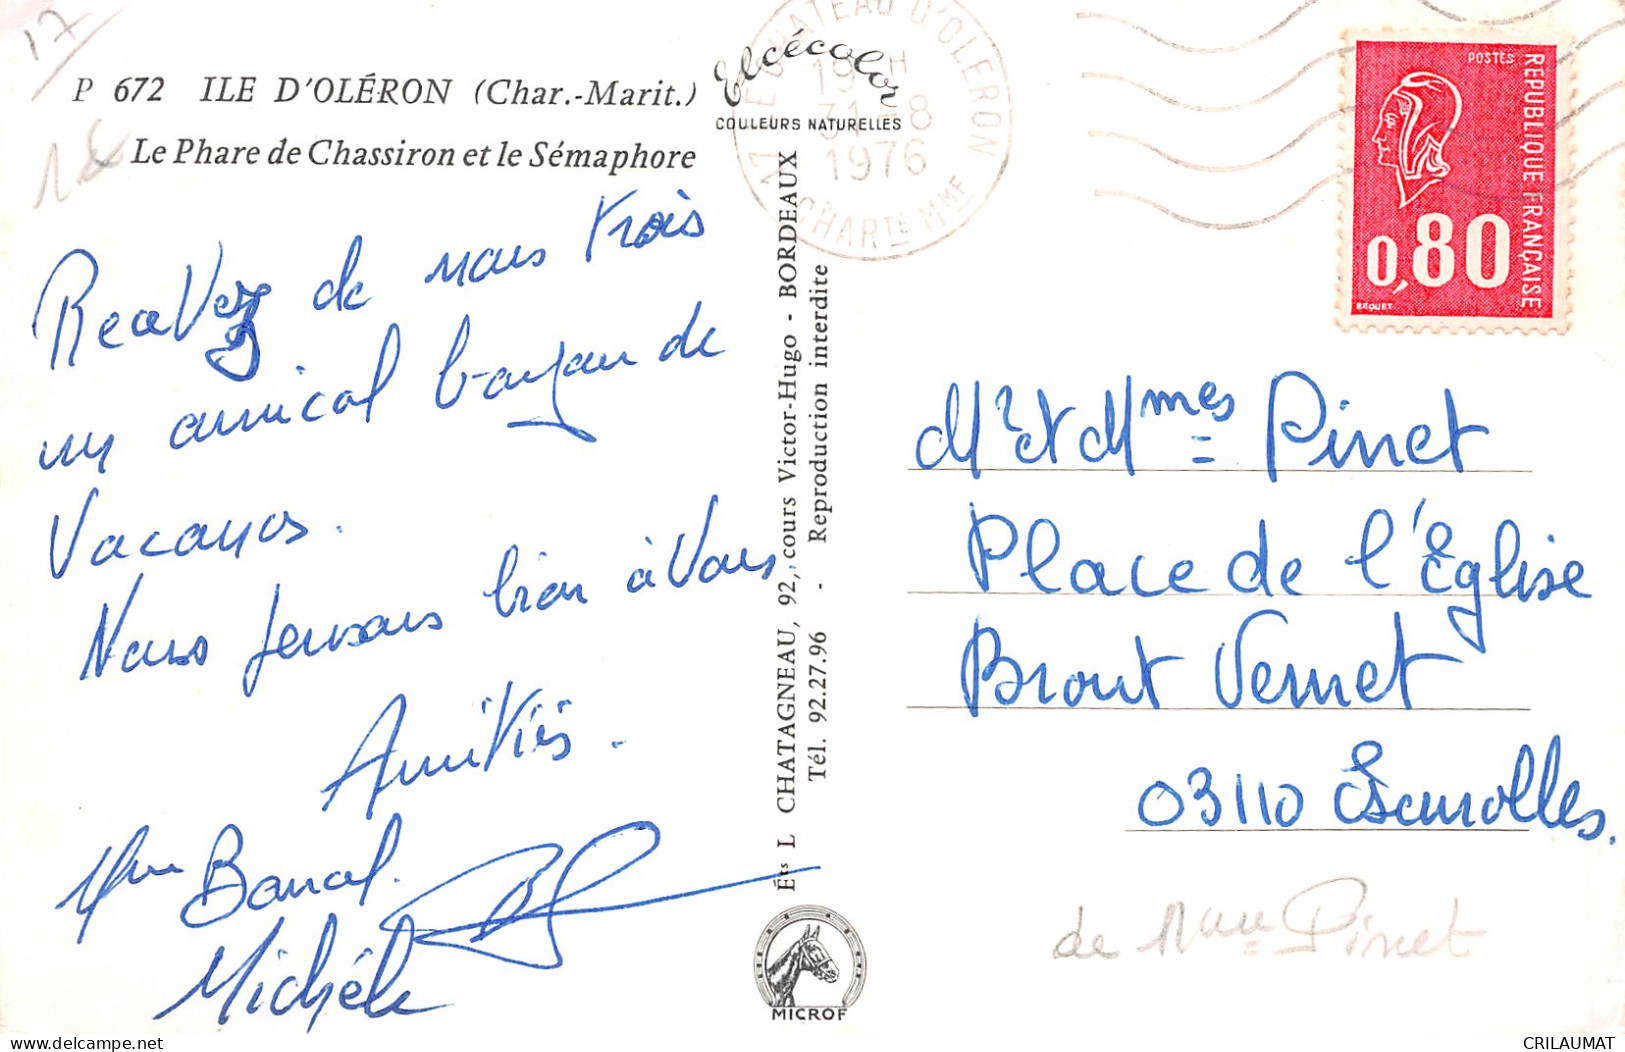 17
P 672 ILE D'OLÉRON (Char.-Marit.)
Le Phare de Chassiron et le Sémaphore
Elcécolor
COULEURS NATURELLES
Recevez de nous trois
un amical bonjour de
Vacances.
Nous pensons bien à Vous
Amitiés.
Mme Bancal.
Michèle
Éts L CHATAGNEAU, 92, cours Victor-Hugo - BORDEAUX
Tél. 92.27.96 - Reproduction interdite
MICROF
LE CHATEAU D'OLERON
19 H
31 - 8
1976
CHARTE MME
POSTES
REPUBLIQUE FRANÇAISE
0,80
BEQUET
Mr et Mmes Pinet
Place de l'Église
Brout Vernet
03110 Escurolles.
de Mme Pinet
CRILAUMAT